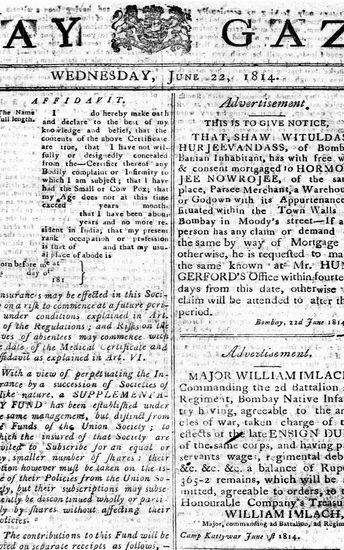 AY GAZ
WEDNESDAY, JUNE 22, 1814.
AFFIDAVIT.
The Name
full length.
I do hereby make oath
and declare to the best of my
knowledge and belief, that the
contents of the above Certificate
are true, that I have not wil-
fully or designedly concealed
from the—Certifier thereof any
Bodily complaint or Infirmity to
which I am subject; that I have
had the Small or Cow Pox; that
my Age does not at this time
exceed years month
that I have been about
years and no more re-
sident in India; that my present
rank occupation or profession
is that of and that my usu-
al place of abode is
orn before me at
day of
181
nsurances may be effected in this Soci-
on a risk to commence at a future peri-
under conditions explained in Art.
of the Regulations; and Risks on the
ves of absentees may commence with
date of the Medical Certificate and
ffidavit as explained in Art. VI.
With a view of perpetuating the In-
rance by a succession of Societies of
like nature, a SUPPLEMENTA-
Y FUND has been established under
e same management, but distinct from
Funds of the Union Society; to
ich the insured of that Society are
vited to Subscribe for an equal or
y smaller number of shares: their
tion however must be taken on the is-
e of their Policies from the Union So-
ty, but their subscriptions may subse-
ently be discontinued wholly or parti-
ly by shares without affecting their
olicies.
The contributions to this Fund will be
ied on separate receipts as follows,—
Advertisement.
THIS IS TO GIVE NOTICE,
THAT, SHAW WITULDAS
HURJEEVANDASS, of Bomb
Banian Inhabitant, has with free w
& consent mortgaged to HORMO
JEE NOWROJEE, of the sam
place, Parsee Merchant, a Warehou
or Godown with its Appurtenance
situated within the Town Walls
Bombay in Moody's street—If a
person has any claim or demand
the same by way of Mortgage
otherwise, he is requested to ma
the same known at Mr. HU
GERFORD'S Office within fourte
days from this date, otherwise
claim will be attended to after th
period.
Bombay, 22d June 1814
Advertisement.
MAJOR WILLIAM IMLACH,
Commanding the 2d Battalion
Regiment, Bombay Native Infan
try having, agreeable to the ar
cles of war, taken charge of t
effects of the late ENSIGN DU
of the same corps, and having pa
servants wages, regimental deb
&c. &c. &c. a balance of Rupe
365-2 remains, which will be
mitted, agreeable to orders, to t
Honourable Company's Treasur
WILLIAM IMLACH,
Major, commanding 2d Battalion, 2d Regim
Camp Kattywar June 1814.